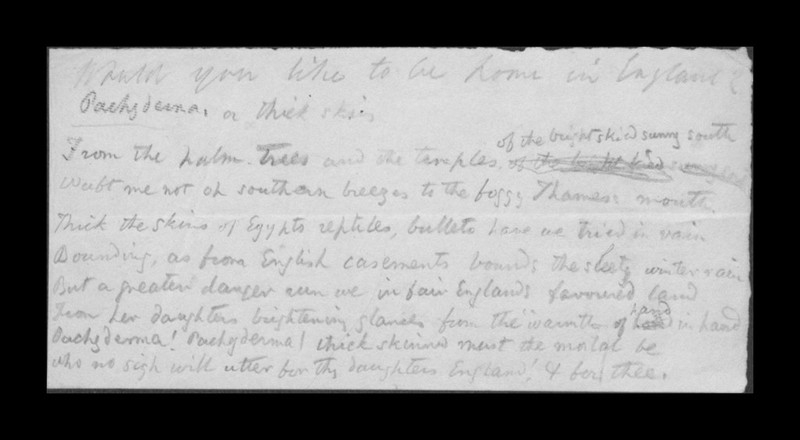 Would you like to be home in England?
Pachyderma. a thick skin
of the bright skied sunny south
From the palm-trees and the temples, of the bright skied
Waft me not oh southern breezes to the foggy Thames's mouth.
Thick the skins of Egypts reptiles, bullets have we tried in vain
Bounding, as from English casements bounds the sleety winter rain
But a greater danger run we in fair Englands favoured land
From her daughters brightening glances from the warmth of hand in hand
Pachyderma! Pachyderma! thick skinned must the mortal be
who no sigh will utter for thy daughters England! & for thee.